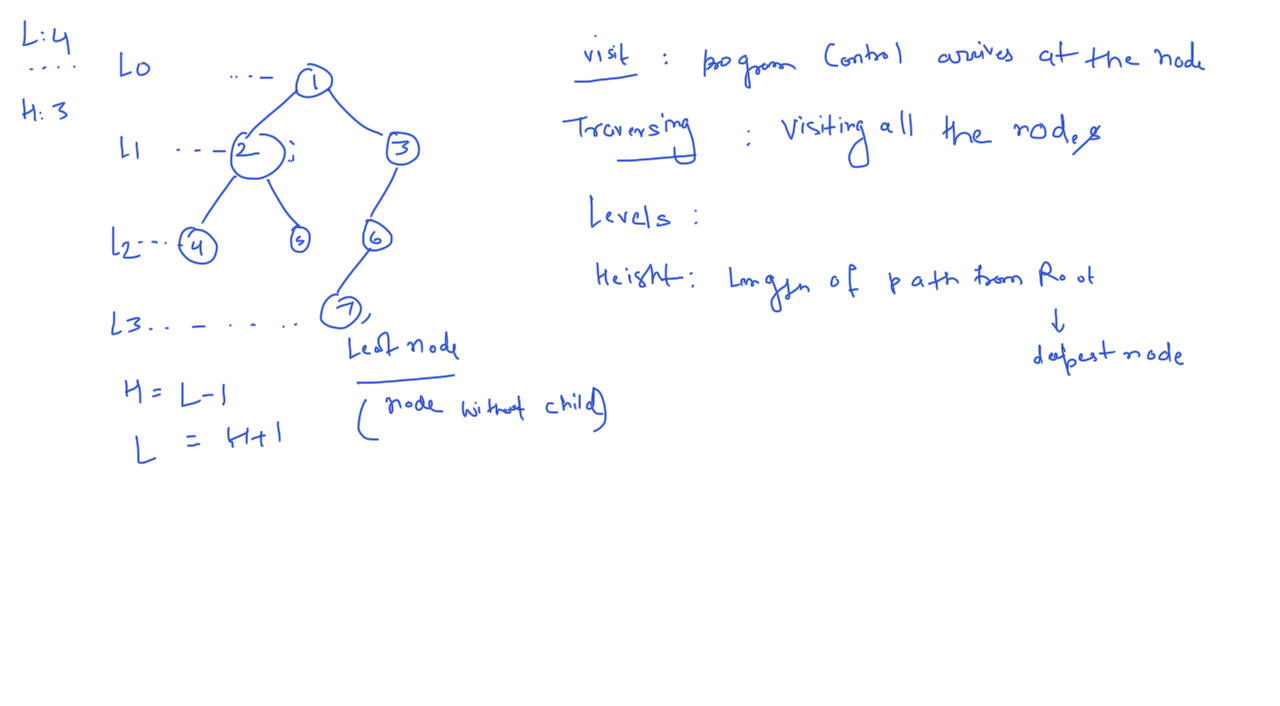 L:4
H: 3
L0
1
L1
2
3
L2
4
5
6
L3
7
Leaf node
(node without child)
H = L-1
L = H+1
visit : program Control arrives at the node
Traversing : Visiting all the nodes
Levels :
Height: Length of path from Root
↓
deepest node